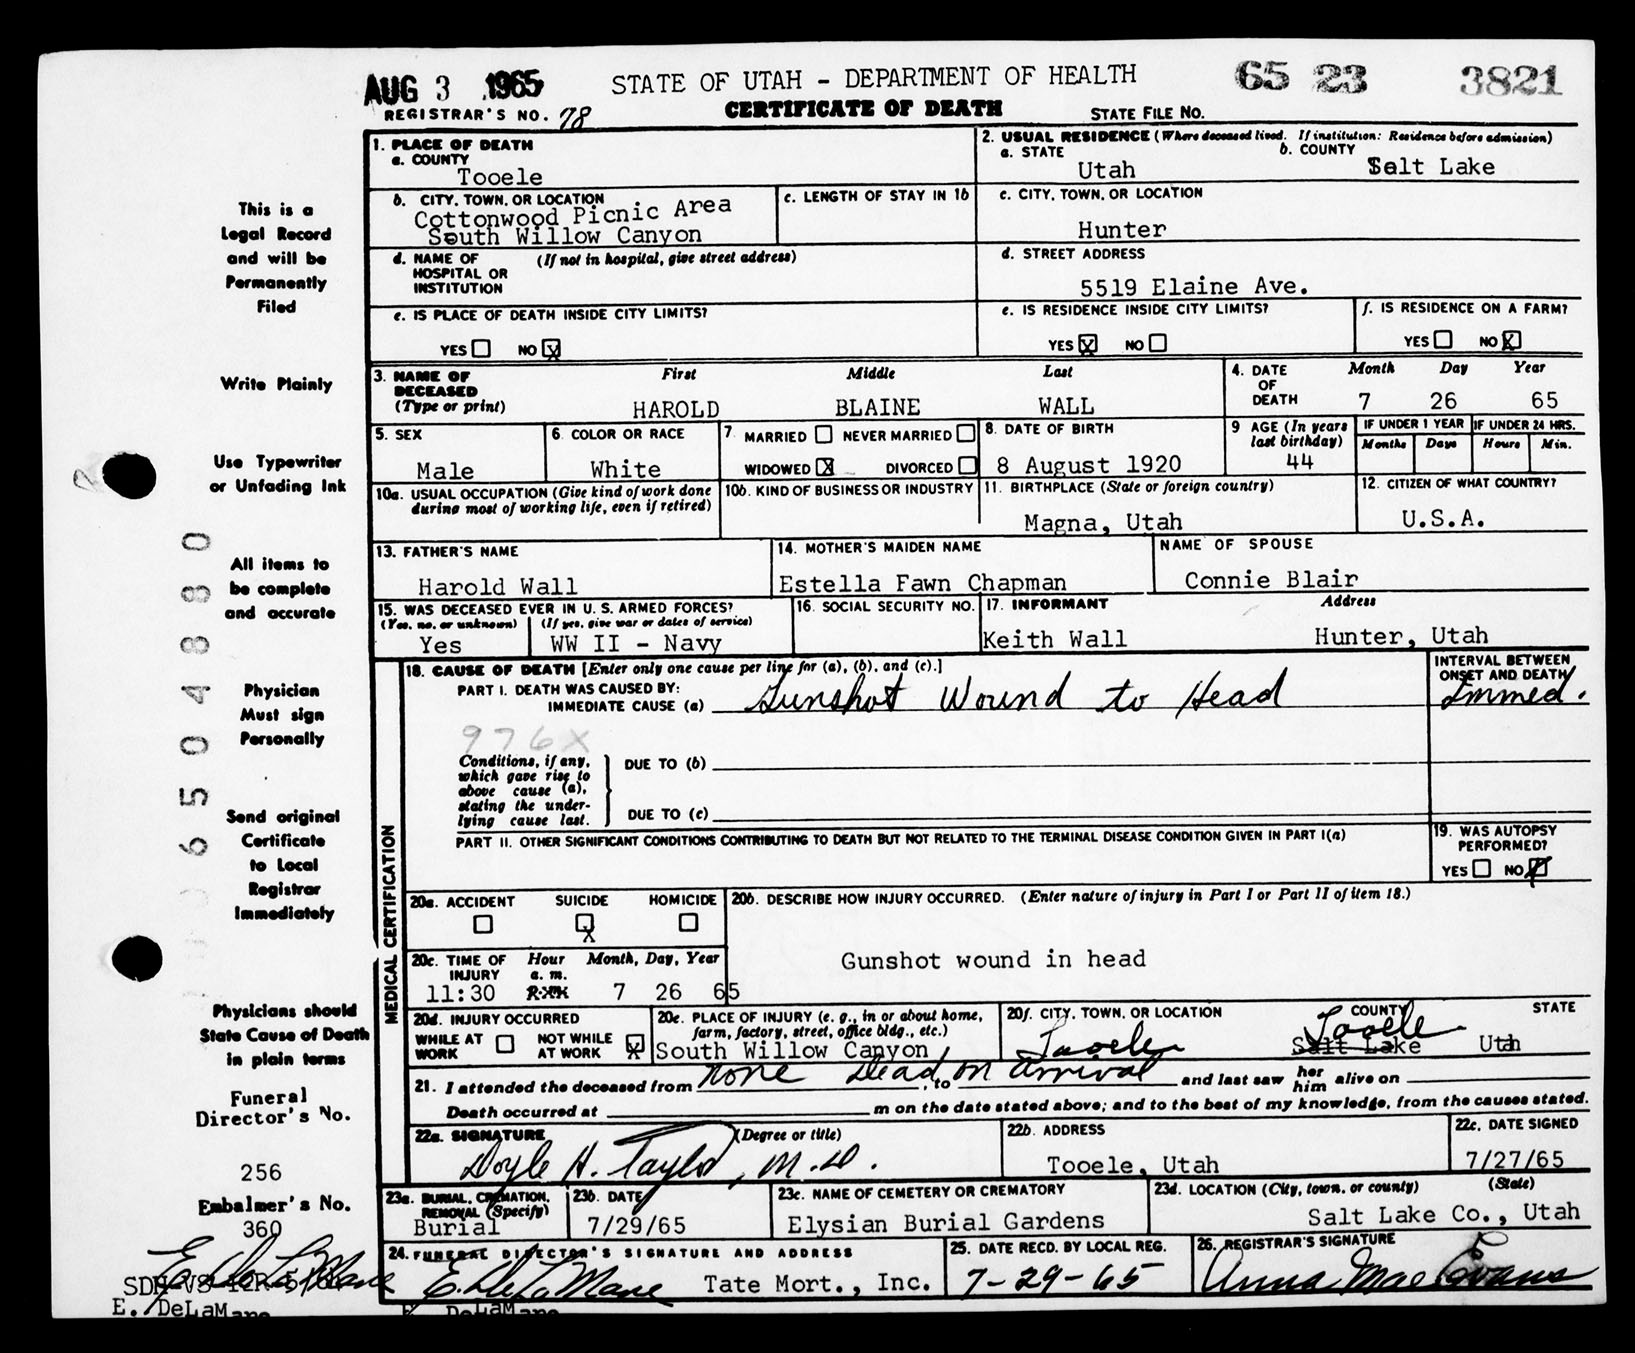 AUG 3 1965
STATE OF UTAH - DEPARTMENT OF HEALTH
65 23 3821
REGISTRAR'S NO. 78
CERTIFICATE OF DEATH
STATE FILE NO.
This is a
Legal Record
and will be
Permanently
Filed
Write Plainly
Use Typewriter
or Unfading Ink
All items to
be complete
and accurate
Physician
Must sign
Personally
Send original
Certificate
to Local
Registrar
Immediately
Physicians should
State Cause of Death
in plain terms
Funeral
Director's No.
256
Embalmer's No.
360
E. DeLaMare
SDH-VS-12R-5/64
E. DeLaMare
650 4880
1. PLACE OF DEATH
a. COUNTY
Tooele
b. CITY, TOWN, OR LOCATION
Cottonwood Picnic Area
South Willow Canyon
c. LENGTH OF STAY IN 1b
d. NAME OF (If not in hospital, give street address)
HOSPITAL OR
INSTITUTION
e. IS PLACE OF DEATH INSIDE CITY LIMITS?
YES NO X
2. USUAL RESIDENCE (Where deceased lived. If institution: Residence before admission)
a. STATE b. COUNTY
Utah Salt Lake
c. CITY, TOWN, OR LOCATION
Hunter
d. STREET ADDRESS
5519 Elaine Ave.
e. IS RESIDENCE INSIDE CITY LIMITS?
YES X NO
f. IS RESIDENCE ON A FARM?
YES NO X
3. NAME OF First Middle Last
DECEASED
(Type or print) HAROLD BLAINE WALL
4. DATE Month Day Year
OF
DEATH 7 26 65
5. SEX
Male
6. COLOR OR RACE
White
7. MARRIED NEVER MARRIED
WIDOWED X DIVORCED
8. DATE OF BIRTH
8 August 1920
9 AGE (In years
last birthday)
44
IF UNDER 1 YEAR
Months Days
IF UNDER 24 HRS.
Hours Min.
10a. USUAL OCCUPATION (Give kind of work done
during most of working life, even if retired)
10b. KIND OF BUSINESS OR INDUSTRY
11. BIRTHPLACE (State or foreign country)
Magna, Utah
12. CITIZEN OF WHAT COUNTRY?
U.S.A.
13. FATHER'S NAME
Harold Wall
14. MOTHER'S MAIDEN NAME
Estella Fawn Chapman
NAME OF SPOUSE
Connie Blair
15. WAS DECEASED EVER IN U. S. ARMED FORCES?
(Yes, no, or unknown) (If yes, give war or dates of service)
Yes WW II - Navy
16. SOCIAL SECURITY NO.
17. INFORMANT Address
Keith Wall Hunter, Utah
MEDICAL CERTIFICATION
18. CAUSE OF DEATH [Enter only one cause per line for (a), (b), and (c).]
PART I. DEATH WAS CAUSED BY:
IMMEDIATE CAUSE (a) Gunshot Wound to Head
INTERVAL BETWEEN
ONSET AND DEATH
Immed.
976X
Conditions, if any,
which gave rise to
above cause (a),
stating the under-
lying cause last.
DUE TO (b)
DUE TO (c)
PART II. OTHER SIGNIFICANT CONDITIONS CONTRIBUTING TO DEATH BUT NOT RELATED TO THE TERMINAL DISEASE CONDITION GIVEN IN PART I(a)
19. WAS AUTOPSY
PERFORMED?
YES NO
20a. ACCIDENT SUICIDE HOMICIDE
X
20b. DESCRIBE HOW INJURY OCCURRED. (Enter nature of injury in Part I or Part II of item 18.)
Gunshot wound in head
20c. TIME OF Hour Month, Day, Year
INJURY a. m.
11:30 7 26 65
20d. INJURY OCCURRED
WHILE AT WORK NOT WHILE AT WORK X
20e. PLACE OF INJURY (e. g., in or about home,
farm, factory, street, office bldg., etc.)
South Willow Canyon
20f. CITY, TOWN, OR LOCATION COUNTY STATE
Tooele Tooele
Salt Lake Utah
21. I attended the deceased from none Dead on arrival, to and last saw her him alive on
Death occurred at m on the date stated above; and to the best of my knowledge, from the causes stated.
22a. SIGNATURE (Degree or title)
Doyle H. Taylor, M.D.
22b. ADDRESS
Tooele, Utah
22c. DATE SIGNED
7/27/65
23a. BURIAL, CREMATION,
REMOVAL (Specify)
Burial
23b. DATE
7/29/65
23c. NAME OF CEMETERY OR CREMATORY
Elysian Burial Gardens
23d. LOCATION (City, town, or county) (State)
Salt Lake Co., Utah
24. FUNERAL DIRECTOR'S SIGNATURE AND ADDRESS
E. DeLaMare Tate Mort., Inc.
E DeLaMare
25. DATE RECD. BY LOCAL REG.
7-29-65
26. REGISTRAR'S SIGNATURE
Anna Mae Evans